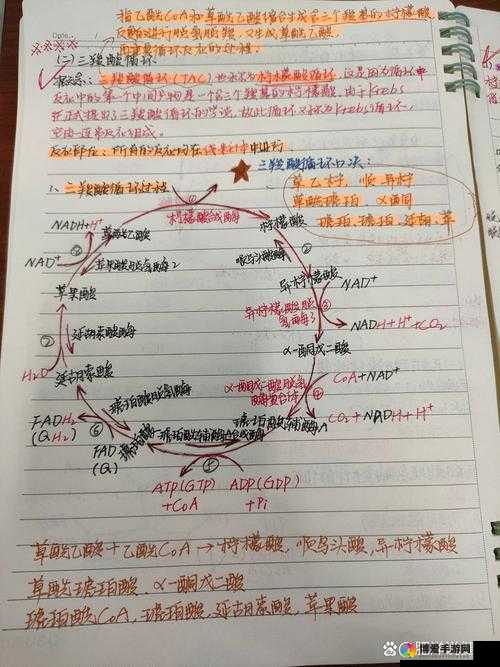 指乙酰CoA和草酰乙酸缩合生成含三个羧基的柠檬酸,
反复进行脱氢脱羧,又生成草酰乙酸,
再重复循环反应的过程。
Date.
(二)三羧酸循环
概述:三羧酸循环(TAC)也称为柠檬酸循环,这是因为循环中
反应中的第一个中间产物是一个含三个羧基的柠檬酸,由于Krebs
正式提出了三羧酸循环的学说,故此循环又称为Krebs循环,
它由一连串反应组成。
反应部位:所有的反应均在线粒体中进行
三羧酸循环口决:
草乙柠,顺异柠
草酰琥珀,α酮
琥珀,琥珀,延胡,苹
1、三羧酸循环过程
①
柠檬酸合成酶
草酰乙酸
柠檬酸
NADH+H⁺
⑧
NAD⁺
苹果酸脱氢酶
②
顺乌头酸酶
苹果酸
异柠檬酸
NAD⁺
异柠檬酸脱氢酶
③
NADH+H⁺+CO₂
⑦
延胡索酸酶
α-酮戊二酸
H₂O
延胡索酸
α-酮戊二酸脱氢酶复合体
CoA+NAD⁺
④
CO₂+NADH+H⁺
琥珀酸脱氢酶
FADH₂
(QH₂)
⑥
FAD
(Q)
琥珀酸
琥珀酰辅酶A合成酶
琥珀酰辅酶A
⑤
ATP(GTP)
+CoA
ADP(GDP)
+Pi
草酰乙酸+乙酰CoA→柠檬酸,顺乌头酸,异柠檬酸
草酰琥珀酸,α-酮戊二酸
琥珀酰CoA,琥珀酸,延胡索酸,苹果酸
博爱手游网